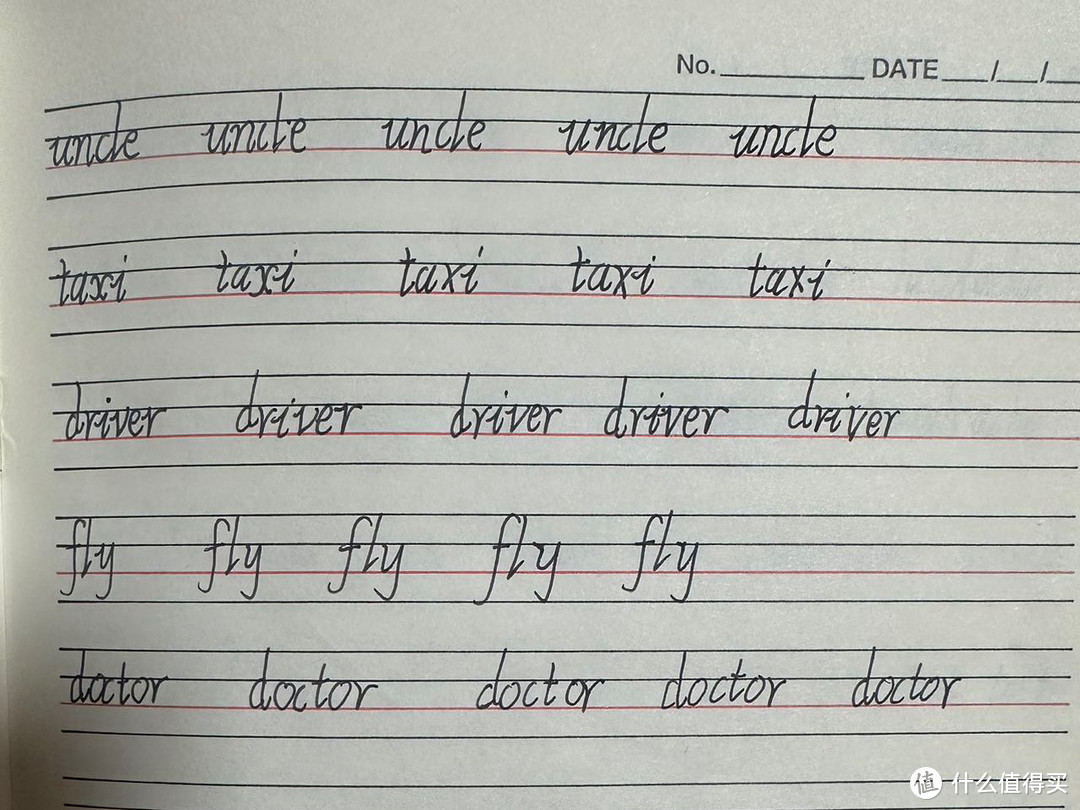 No. DATE / /
uncle uncle uncle uncle uncle
taxi taxi taxi taxi taxi
driver driver driver driver driver
fly fly fly fly fly
doctor doctor doctor doctor doctor
值 什么值得买